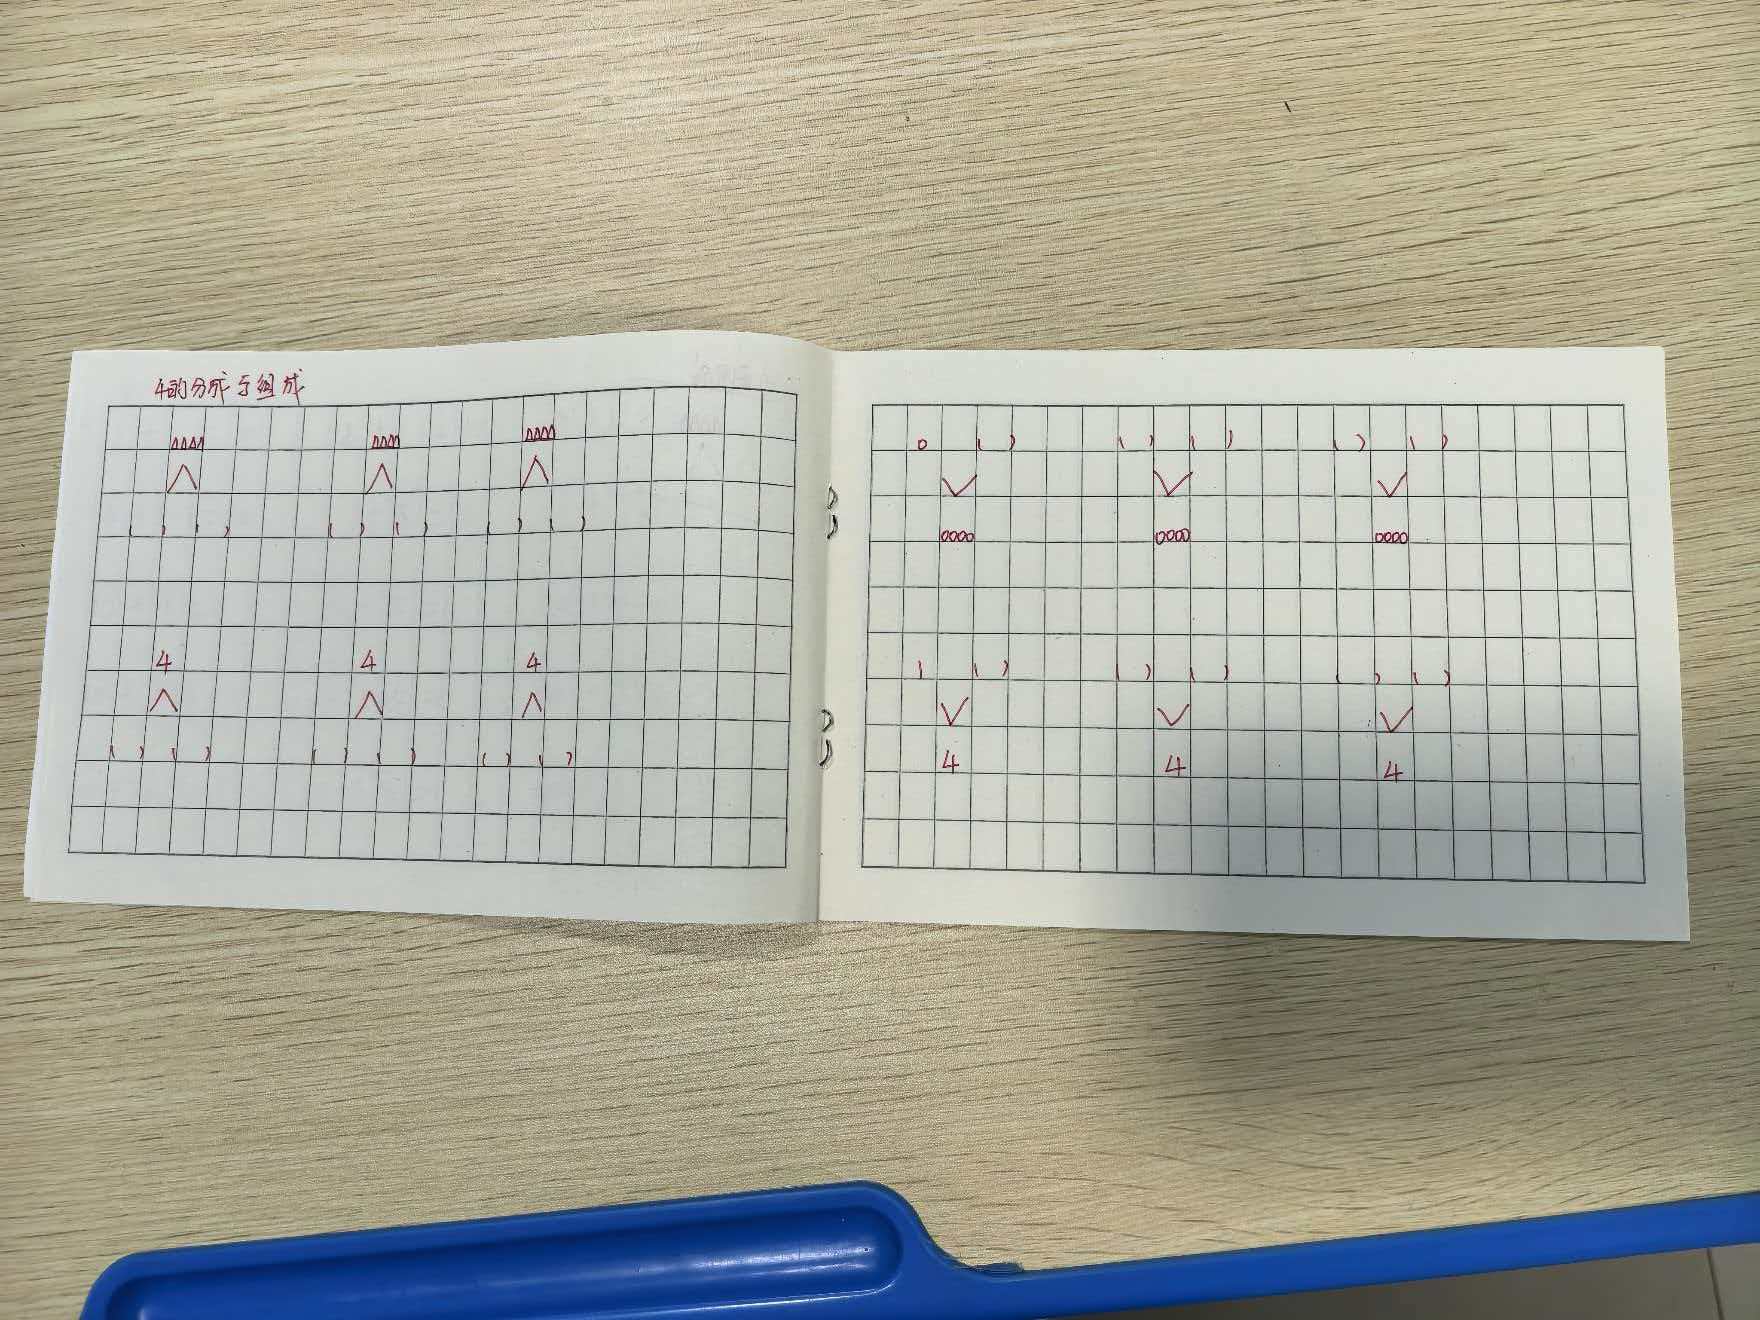 4的分成与组成
△△△△ △△△△ △△△△
∧ ∧ ∧
( ) ( ) ( ) ( ) ( ) ( )
4 4 4
∧ ∧ ∧
( ) ( ) ( ) ( ) ( ) ( )
0 ( ) ( ) ( ) ( ) ( )
∨ ∨ ∨
0000 0000 0000
1 ( ) ( ) ( ) ( ) ( )
∨ ∨ ∨
4 4 4